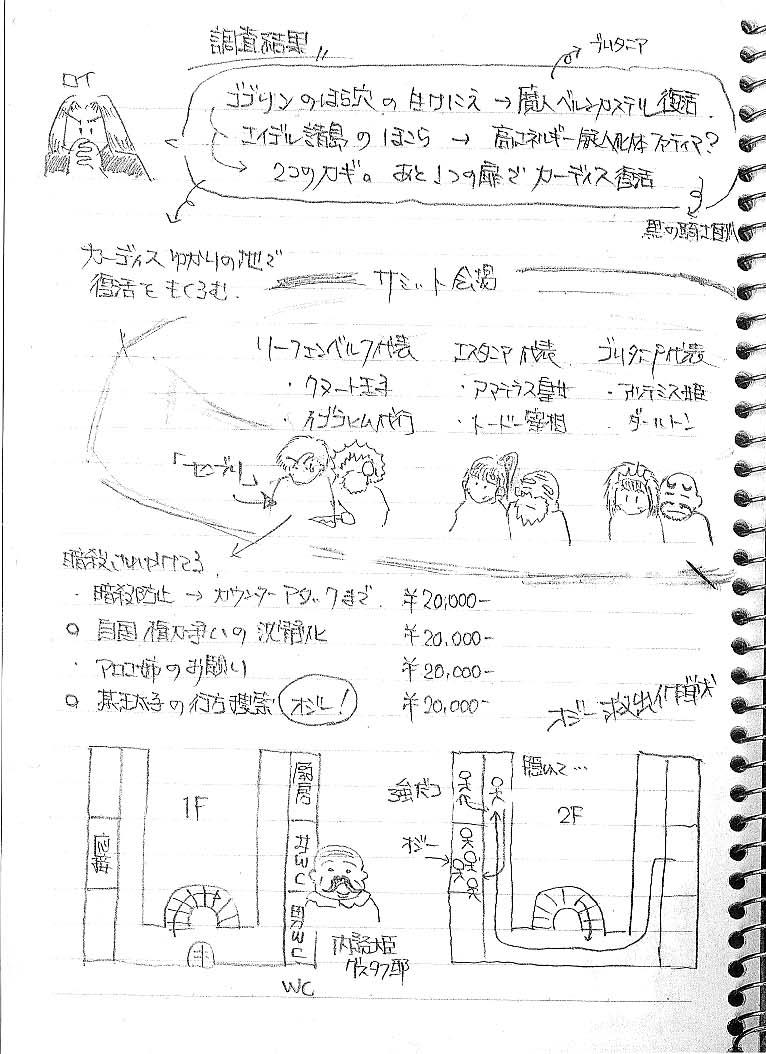 調査結果
ブリタニア
ロイ
ゴブリンのほら穴の生けにえ → 魔人ベルンカステル復活
エイデル諸島のほこら → 高エネルギー展人化体ファティマ?
2つのカギ。あと1つの扉でカーディス復活
黒の騎士団
カーディスゆかりの地で
復活をもくろむ
サミット会場
リーフェンベルク代表 エスタニア代表 ブリタニア代表
・クヌート王子 ・アマテラス皇女 ・アルテミス姫
・イブラヒム代行 ・トードー宰相 ・ダールトン
「センブリ」
暗殺されかけてる
・暗殺防止 → カウンターアタックまで ¥20,000-
○ 自国権力争いの沈静化 ¥20,000-
・アロエ姉のお願い ¥20,000-
○ 某王太子の行方捜索 オジー! ¥20,000-
オジー救出作戦
1F
厨房
応接
女WC
男WC
WC
内務大臣
グスタフ邸
強だつ
オジー
隠れて…
2F
OK
OK
OK
OK
OK
OK